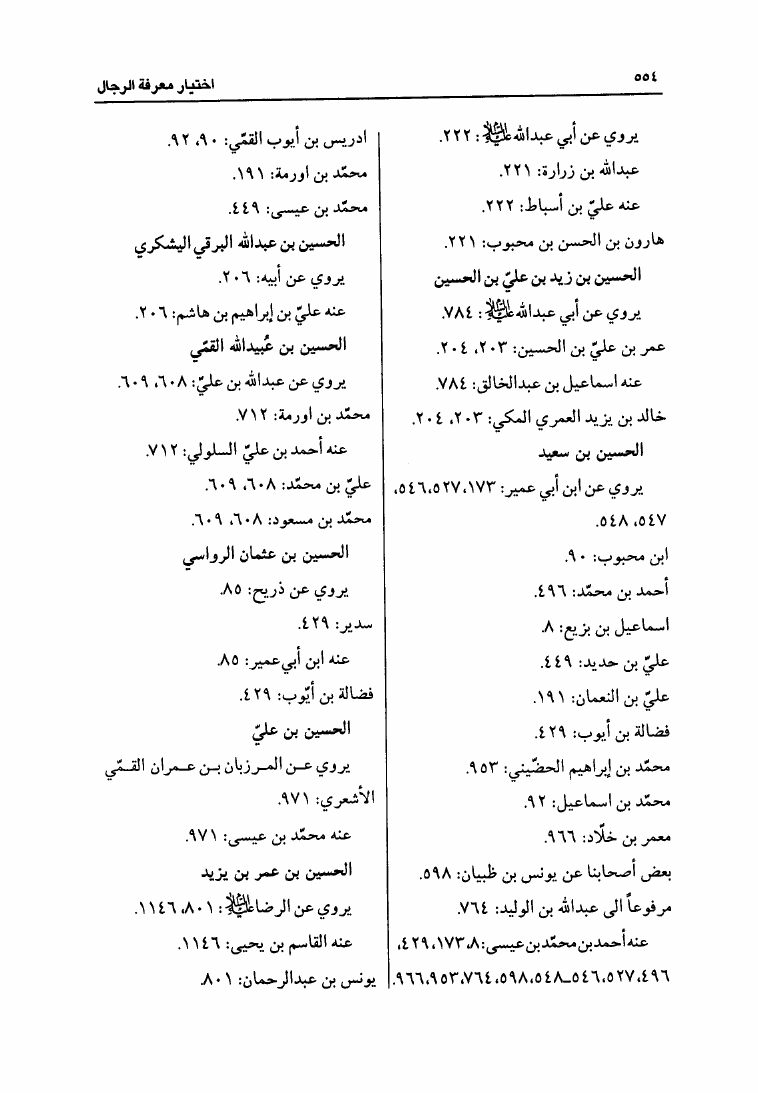 ٥٥٤
اختيار معرفة الرجال
يروي عن أبي عبدالله عليه السلام: ٢٢٢.
عبدالله بن زرارة: ٢٢١.
عنه عليّ بن أسباط: ٢٢٢.
هارون بن الحسن بن محبوب: ٢٢١.
الحسين بن زيد بن عليّ بن الحسين
يروي عن أبي عبدالله عليه السلام: ٧٨٤.
عمر بن عليّ بن الحسين: ٢٠٣، ٢٠٤.
عنه اسماعيل بن عبدالخالق: ٧٨٤.
خالد بن يزيد العمري المكي: ٢٠٣، ٢٠٤.
الحسين بن سعيد
يروي عن ابن أبي عمير: ١٧٣، ٥٢٧، ٥٤٦،
٥٤٧، ٥٤٨.
ابن محبوب: ٩٠.
أحمد بن محمّد: ٤٩٦.
اسماعيل بن بزيع: ٨.
عليّ بن حديد: ٤٤٩.
عليّ بن النعمان: ١٩١.
فضالة بن أيوب: ٤٢٩.
محمّد بن إبراهيم الحضّيني: ٩٥٣.
محمّد بن اسماعيل: ٩٢.
معمر بن خلّاد: ٩٦٦.
بعض أصحابنا عن يونس بن ظبيان: ٥٩٨.
مرفوعاً الى عبدالله بن الوليد: ٧٦٤.
عنه أحمد بن محمّد بن عيسى: ٨، ١٧٣، ٤٢٩،
٤٩٦، ٥٢٧، ٥٤٦ـ٥٤٨، ٥٩٨، ٧٦٤، ٩٥٣، ٩٦٦.
ادريس بن أيوب القمّي: ٩٠، ٩٢.
محمّد بن اورمة: ١٩١.
محمّد بن عيسى: ٤٤٩.
الحسين بن عبدالله البرقي اليشكري
يروي عن أبيه: ٢٠٦.
عنه علي بن إبراهيم بن هاشم: ٢٠٦.
الحسين بن عُبيدالله القمّي
يروي عن عبدالله بن عليّ: ٦٠٨، ٦٠٩.
محمّد بن اورمة: ٧١٢.
عنه أحمد بن عليّ السلولي: ٧١٢.
عليّ بن محمّد: ٦٠٨، ٦٠٩.
محمّد بن مسعود: ٦٠٨، ٦٠٩.
الحسين بن عثمان الرواسي
يروي عن ذريح: ٨٥.
سدير: ٤٢٩.
عنه ابن أبي عمير: ٨٥.
فضالة بن أيّوب: ٤٢٩.
الحسين بن عليّ
يروي عـن المـرزبان بـن عـمران القـمّي
الأشعري: ٩٧١.
عنه محمّد بن عيسى: ٩٧١.
الحسين بن عمر بن يزيد
يروي عن الرضا عليه السلام: ٨٠١، ١١٤٦.
عنه القاسم بن يحيى: ١١٤٦.
يونس بن عبدالرحمان: ٨٠١.